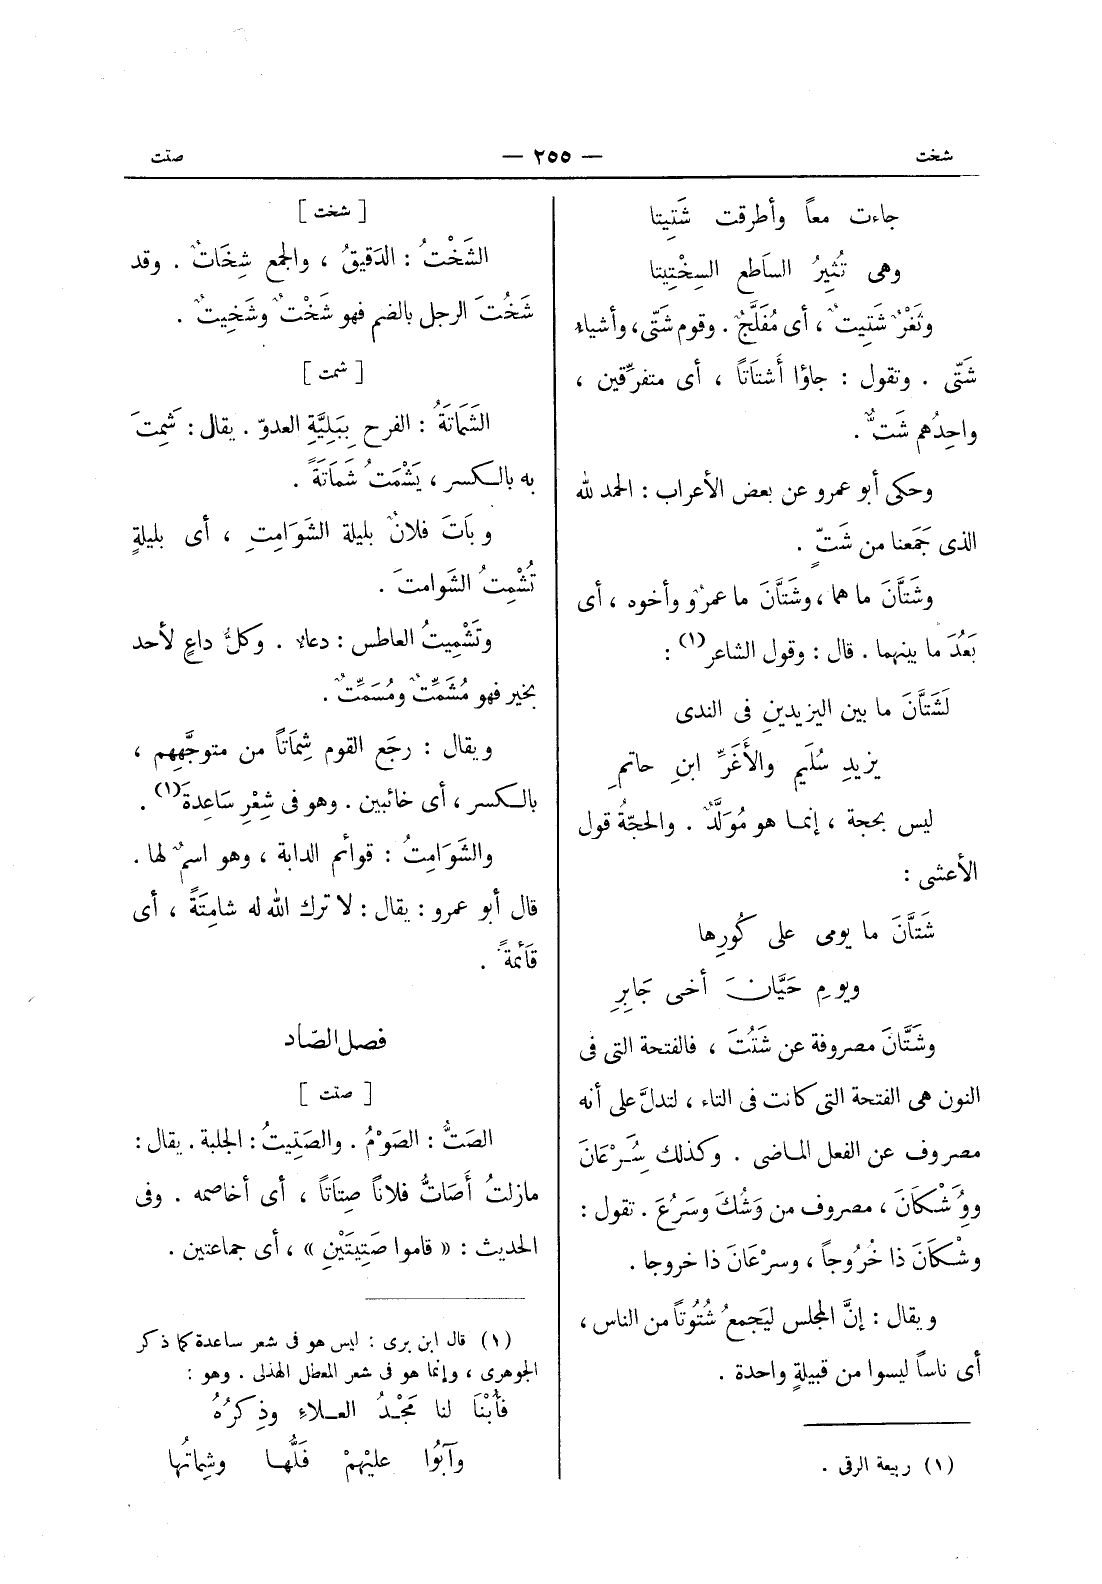 شخت
— ٢٥٥ —
صتت
جاءت معاً وأطرقت شَتِيتا
وهى تُثِيرُ الساَطع السِخْتِيتا
وثَغْرٌ شَتِيتٌ ، أى مُفَلَّجٌ . وقوم شَتّى، وأشياء
شَتّى . وتقول : جاؤا أَشتَاتاً ، أى متفرِّقين ،
واحِدُهم شَتٌّ .
وحكى أبو عمرو عن بعض الأعراب : الحمد لله
الذى جَمَعنا من شَتٍّ .
وشَتَّانَ ما هما ، وشَتَّانَ ما عمرٌو وأخوه ، أى
بَعُدَ ما بينهما . قال : وقول الشاعر (١) :
لَشَتَّانَ ما بين اليزيدينِ فى الندى
يزيدِ سُلَيم والأَغَرِّ ابنِ حاتمِ
ليس بحجة ، إنمـا هو مُوَلَّدٌ . والحجّةُ قول
الأعشى :
شَتَّانَ ما يومى على كُورِها
ويومِ حَيَّانَ أخى جَابِرِ
وشَتَّانَ مصروفة عن شَتُتَ ، فالفتحة التى فى
النون هى الفتحة التى كانت فى التاء ، لتدلَّ على أنه
مصروف عن الفعل المـاضى . وكذلك سُِـرْعَانَ
ووُِشْكَانَ ، مصروف من وَشُكَ وسَرُعَ . تقول :
وشْكَانَ ذا خُرُوجاً ، وسرْعَانَ ذا خروجا .
ويقال : إنَّ المجلس ليَجمعُ شُتُوتاً من الناس ،
أى ناساً ليسوا من قبيلةٍ واحدة .
(١) ربيعة الرقى .
[ شخت ]
الشَخْتُ : الدَقيقُ ، والجمع شِخَاتٌ . وقد
شَخُتَ الرجل بالضم فهو شَخْتٌ وشَخِيتٌ .
[ شمت ]
الشَمَاتَةُ : الفرح بِبَلِيَّةِ العدوّ . يقال : شَمِتَ
به بالـكسر ، يَشْمَتُ شَمَاتَةً .
وبَاتَ فلانٌ بليلة الشَوَامِتِ ، أى بليلةٍ
تُشْمِتُ الشَوامتَ .
وتَشْمِيتُ العاطس : دعاء . وكلُّ داعٍ لأحد
بخير فهو مُشَمِّتٌ ومُسَمِّتٌ .
ويقال : رجَع القوم شِمَاتاً من متوجَّههم ،
بالـكسر ، أى خائبين . وهو فى شِعْرِ سَاعِدةَ (١) .
والشَوَامِتُ : قوائم الدابة ، وهو اسمٌ لها .
قال أبو عمرو : يقال : لا ترك الله له شامِتَةً ، أى
قَائمةً .
فصل الصّاد
[ صتت ]
الصَتُّ : الصَوْمُ . والصَتِيتُ : الجلبة . يقال :
مازلتُ أُصَاتُّ فلاناً صِتَاتاً ، أى أخاصمه . وفى
الحديث : « قاموا صَتِيتَيْنِ » ، أى جماعتين .
(١) قال ابن برى : ليس هو فى شعر ساعدة كما ذكر
الجوهرى ، وإنما هو فى شعر المعطل الهذلى . وهو :
فأُبْنَا لنا مَجْـدُ العـلاءِ وذِكرُهُ
وآبُوا عليْهِمْ فَلُّهـا وشِماتُها